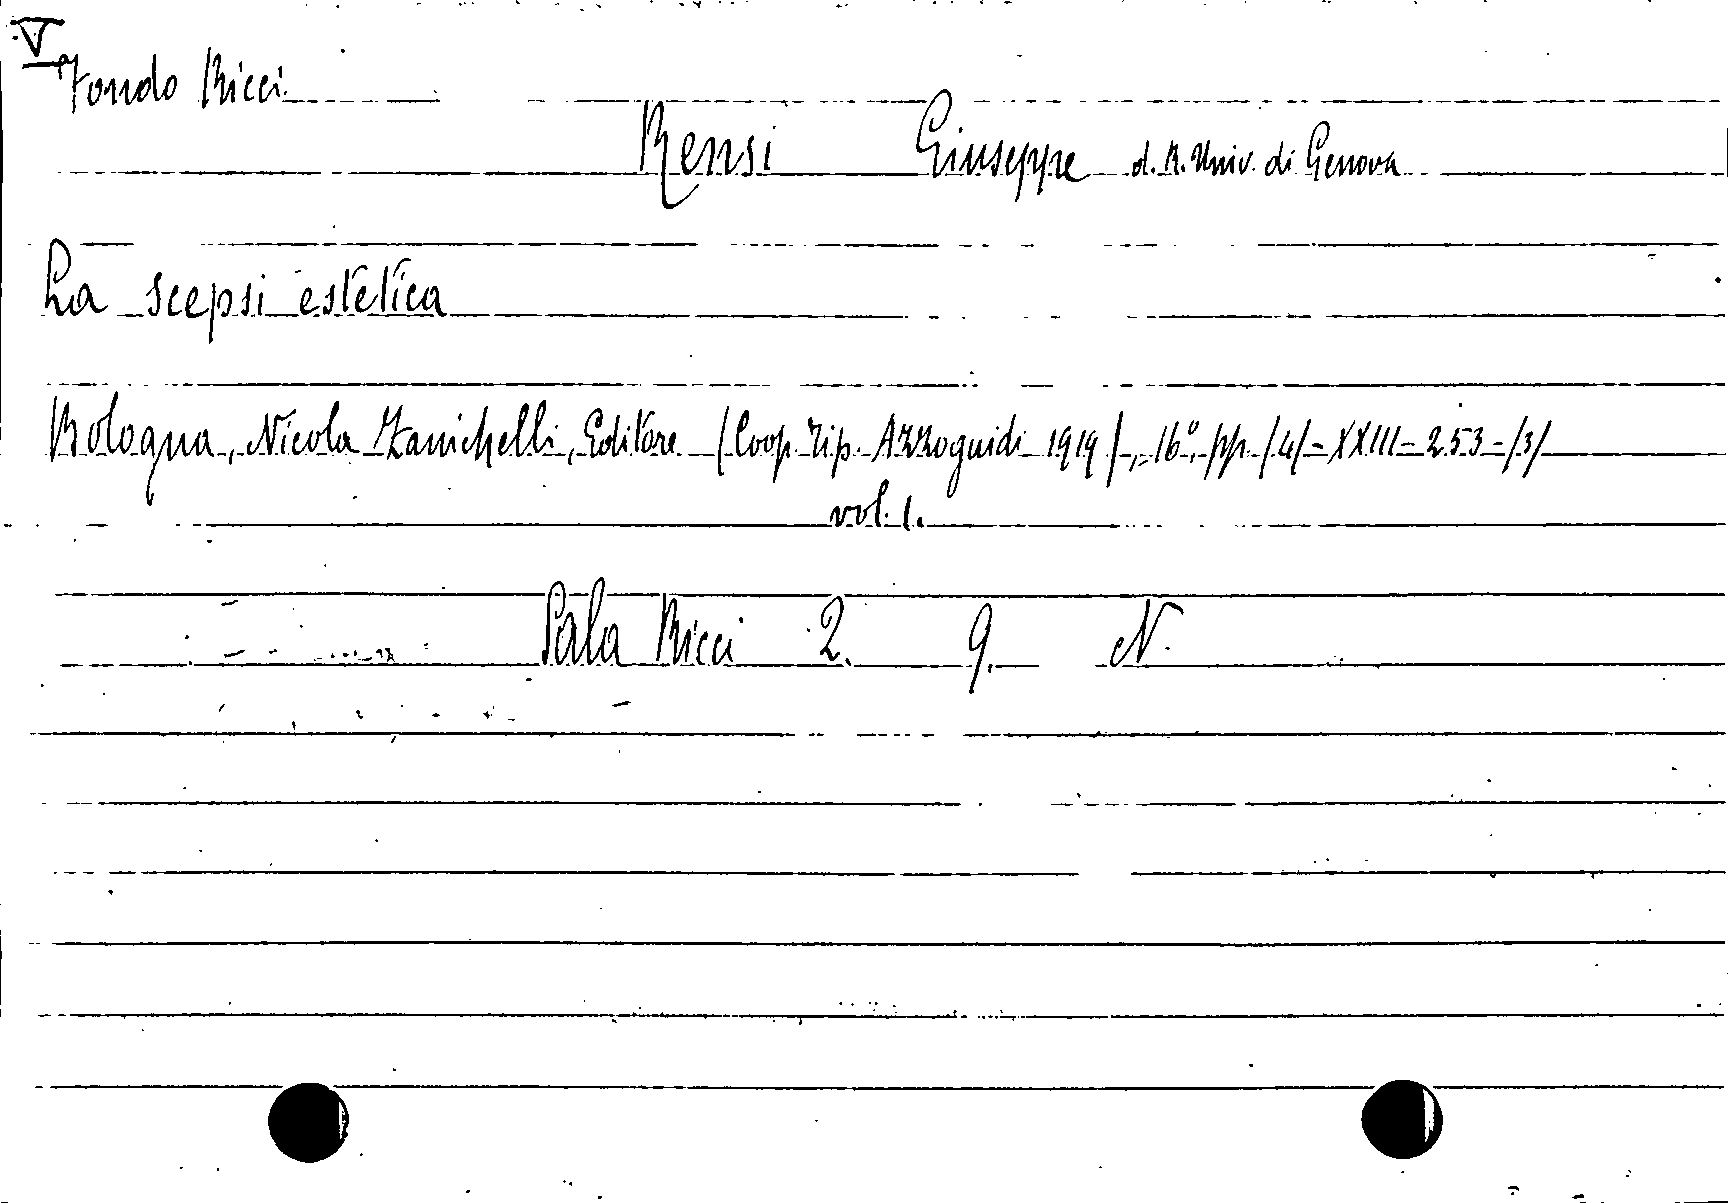 V
Fondo Ricci.
Rensi Giuseppe d. R. Univ. di Genova
La scepsi estetica
Bologna, Nicola Zanichelli, Editore (Coop. Tip. Azzoguidi 1919), 16°, pp. /4/-XXIII-253-/3/
vol. 1.
Sala Ricci 2. 9. N.